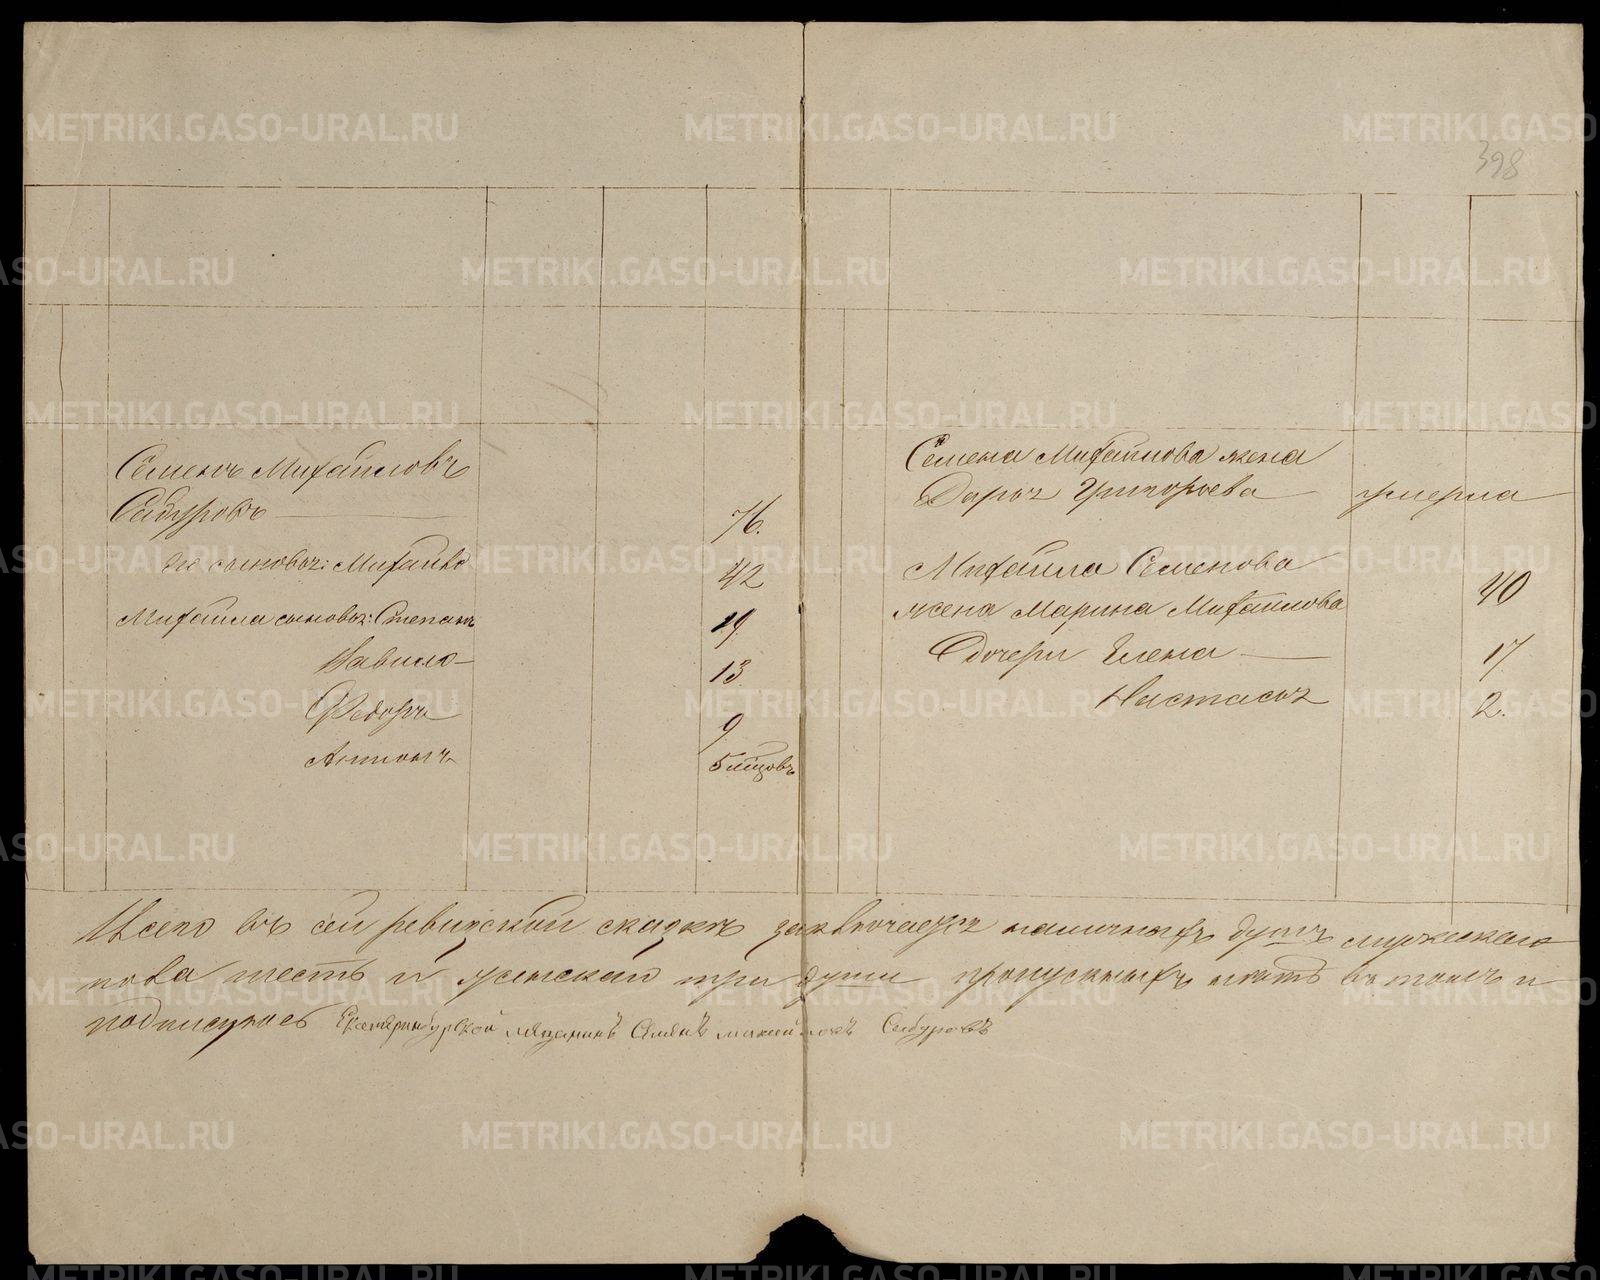 398
Семенъ Михайловъ
Сабуровъ 76.
Его сыновья: Михайло 42
Михайла сыновья: Степанъ 19
Гаврило 13
Федоръ 9
Антонъ 5 месцовъ
Семена Михайлова жена
Дарья Григорьева умерла
Михайла Семенова
жена Марина Михайлова 40
дочери Елена 17
Настасья 2.
Всего въ сей ревизской сказкѣ заключается наличныхъ душъ мужескаго
пола шесть и женскаго три души пропускныхъ нѣтъ въ томъ и
подписуюсь Екатеринбурской мещанинъ Семенъ михайловъ Сабуровъ
METRIKI.GASO-URAL.RU